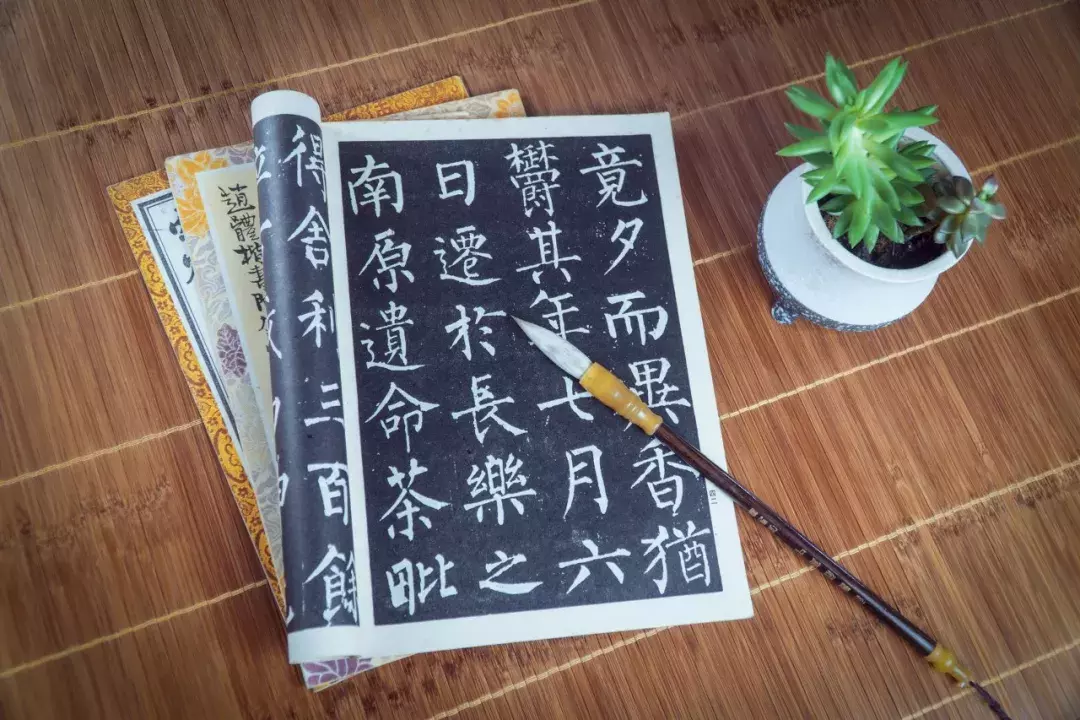 竟夕而異香猶
欝其年七月六
日遷於長樂之
南原遺命茶毗
得舍利三百餘
趙體楷書